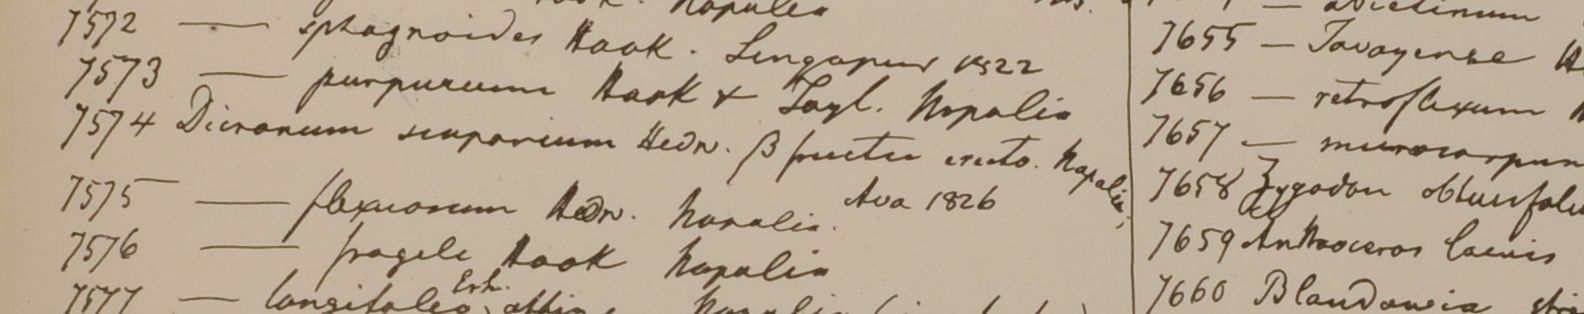 Hook. Napalia
7572 — sphagnoides Hook. Singapur 1822
7573 — purpureum Hook & Tayl. Napalia
7574 Dicranum scoparium Hedw. β fructu erecto. Napalia;
Ava 1826
7575 — flexuosum Hedw. Napalia.
7576 — fragile Hook Napalia
7577 — longifolio, Erh. affine Napalia
— abietinum
7655 — Tavoyense
7656 — retroflexum
7657 — microcarpum
7658 Zygodon obtusifoli
7659 Anthoceros laevis
7660 Blandowia stria